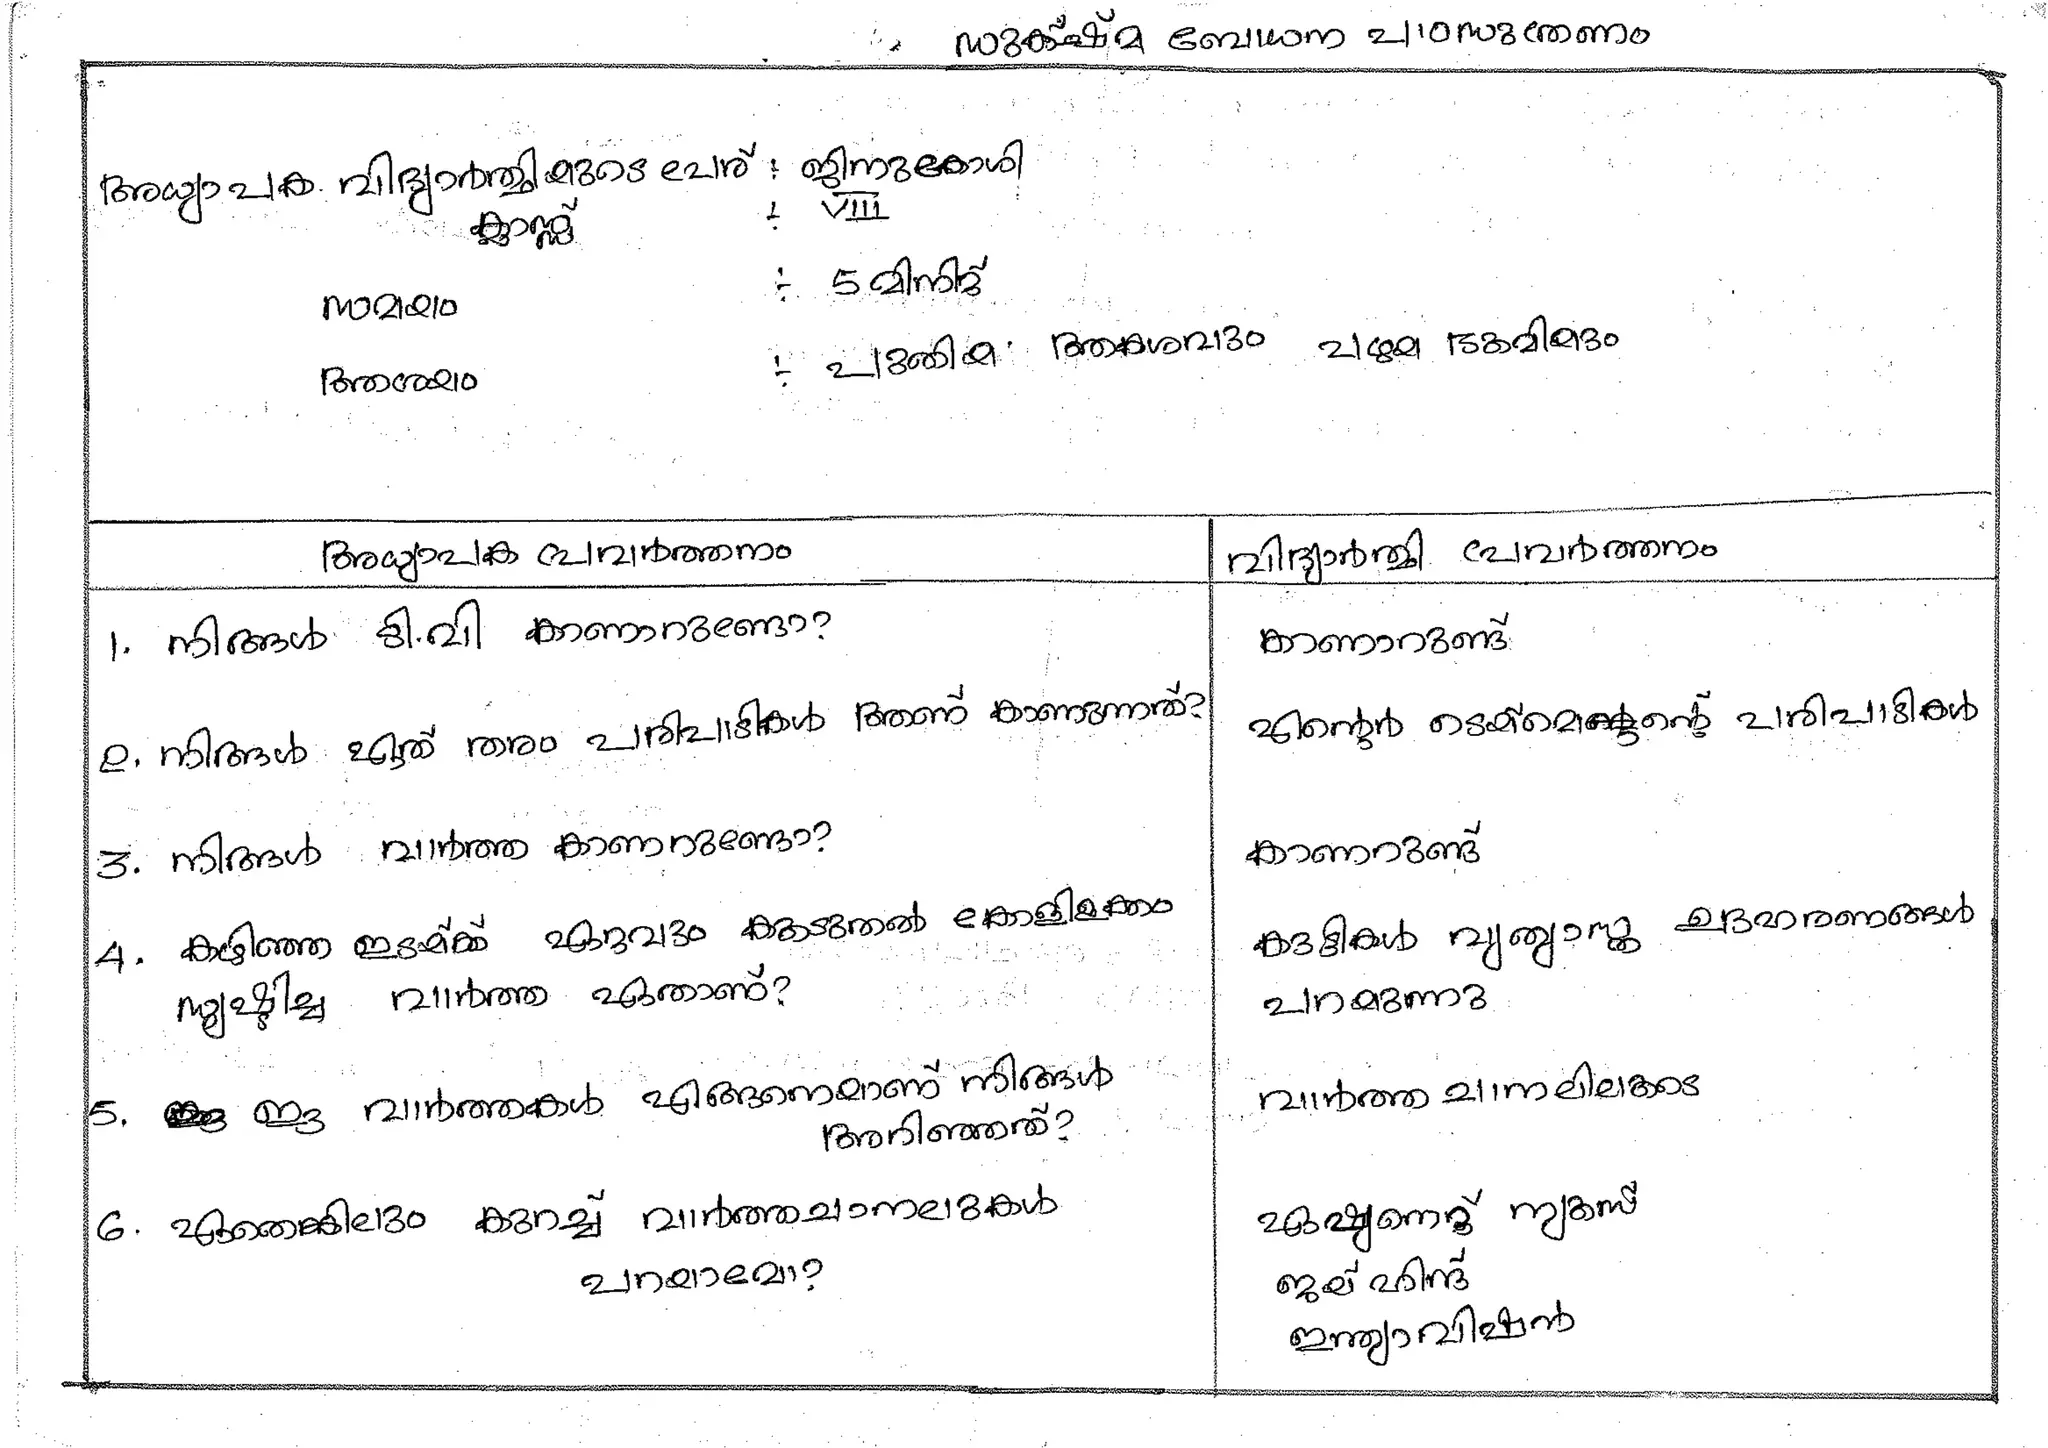 സൂക്ഷ്മ ബോധന പാഠസൂത്രണം
അധ്യാപക വിദ്യാർത്ഥിയുടെ പേര് : ജിനു കോശി
ക്ലാസ്സ് : VIII
സമയം : 5 മിനിറ്റ്
ആശയം : പുതിയ ആകാശവും പഴയ ഭൂമിയും
അധ്യാപക പ്രവർത്തനം
വിദ്യാർത്ഥി പ്രവർത്തനം
1. നിങ്ങൾ ടി.വി കാണാറുണ്ടോ?
കാണാറുണ്ട്
2. നിങ്ങൾ ഏത് തരം പരിപാടികൾ ആണ് കാണുന്നത്?
എന്റെർ ടെയ്മെന്റിന്റെ പരിപാടികൾ
3. നിങ്ങൾ വാർത്ത കാണാറുണ്ടോ?
കാണറുണ്ട്
4. കഴിഞ്ഞ ഇടയ്ക്ക് ഏറ്റവും കൂടുതൽ കോളിളക്കം
സൃഷ്ടിച്ച വാർത്ത ഏതാണ്?
കുട്ടികൾ വ്യത്യാസ്ത ഉദാഹരണങ്ങൾ
പറയുന്നു
5. ഈ വാർത്തകൾ എങ്ങനെയാണ് നിങ്ങൾ
അറിഞ്ഞത്?
വാർത്ത ചാനലിലൂടെ
6. ഏതെങ്കിലും കുറച്ച് വാർത്തചാനലുകൾ
പറയാമോ?
ഏഷ്യനെറ്റ് ന്യൂസ്
ജയ് ഹിന്ദ്
ഇന്ത്യാവിഷൻ